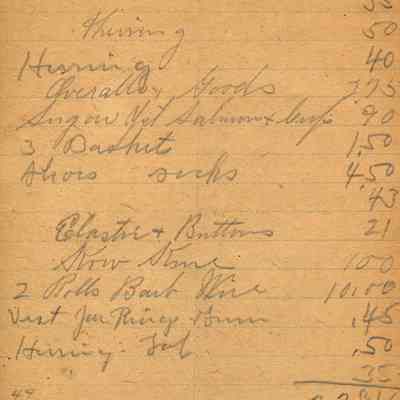 55
Herring 50
Herring 40
Overalls & Goods 775
Sugar Salmon & Cups 90
3 Baskets 1.50
Shoes socks 4.50
43
Elastic & Buttons 21
Stone 100
2 Rolls Barb Wire 10.00
Jar Rings .45
Herring .50
35
49